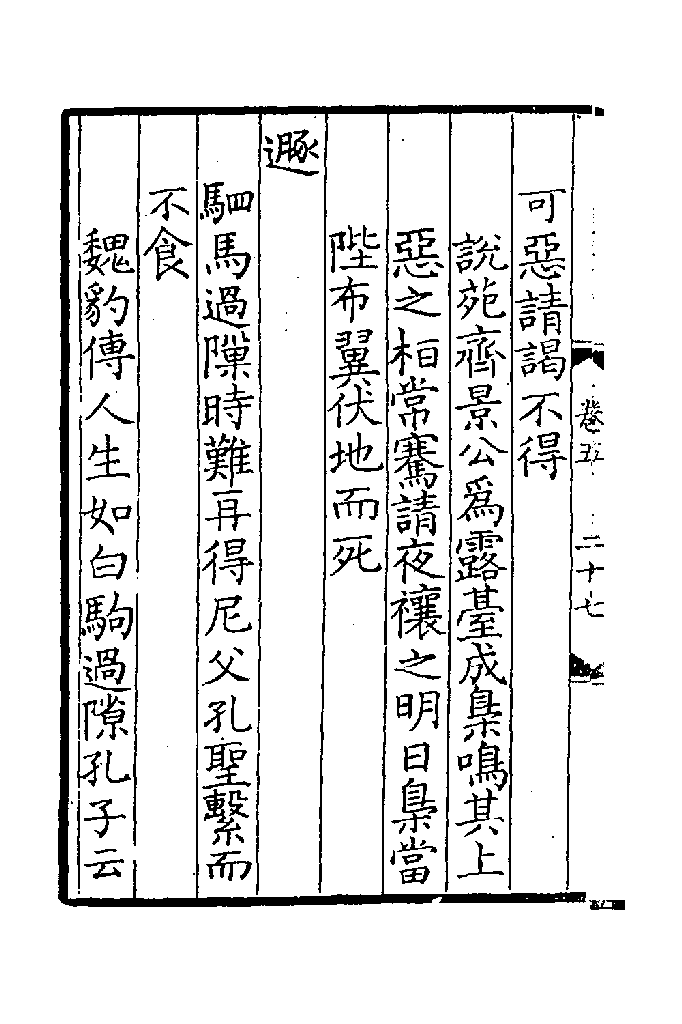 卷五 二十七
可惡請謁不得
說苑齊景公為露䑓成梟鳴其上
惡之栢常騫請夜禳之明日梟當
陛布翼伏地而死
遯
駟馬過隟時難再得尼父孔聖繫而
不食
魏豹傳人生如白駒過隙孔子云